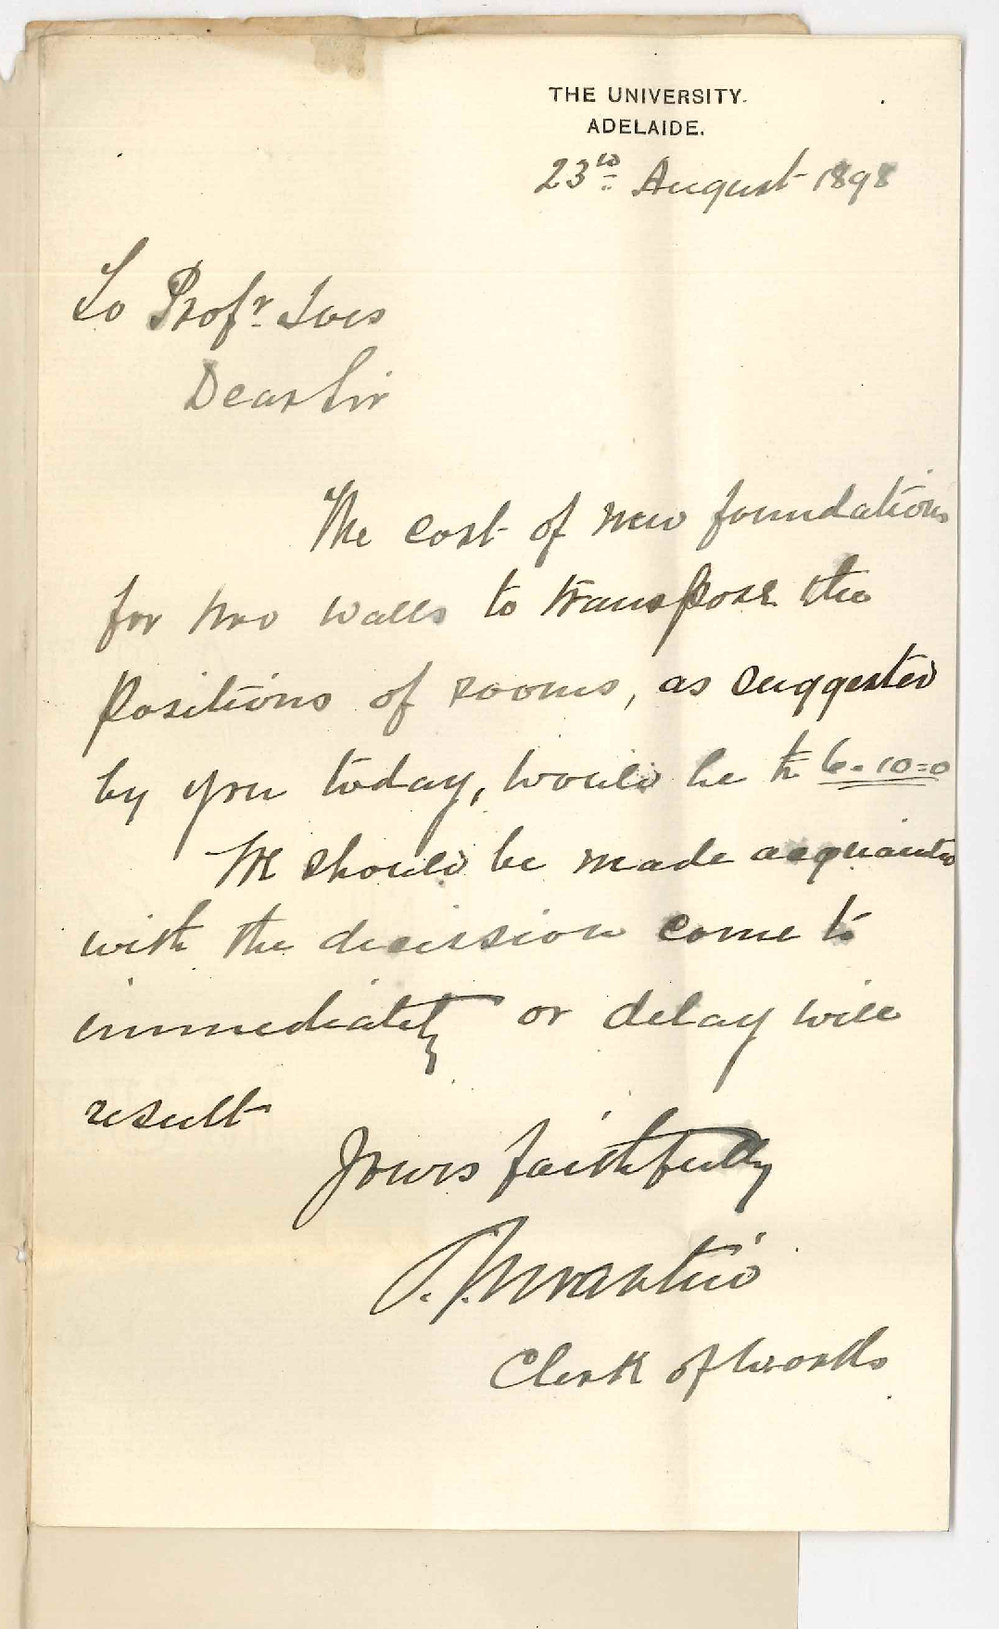 THE UNIVERSITY.
ADELAIDE.
23rd August 1898
To Profr. Ives
Dear Sir
The cost of new foundations
for two walls to transpose the
positions of rooms, as suggested
by you today, would be £6-10=0
We should be made acquainted
with the decission come to
immediately or delay will
result
Yours faithfully
Clerk of Works